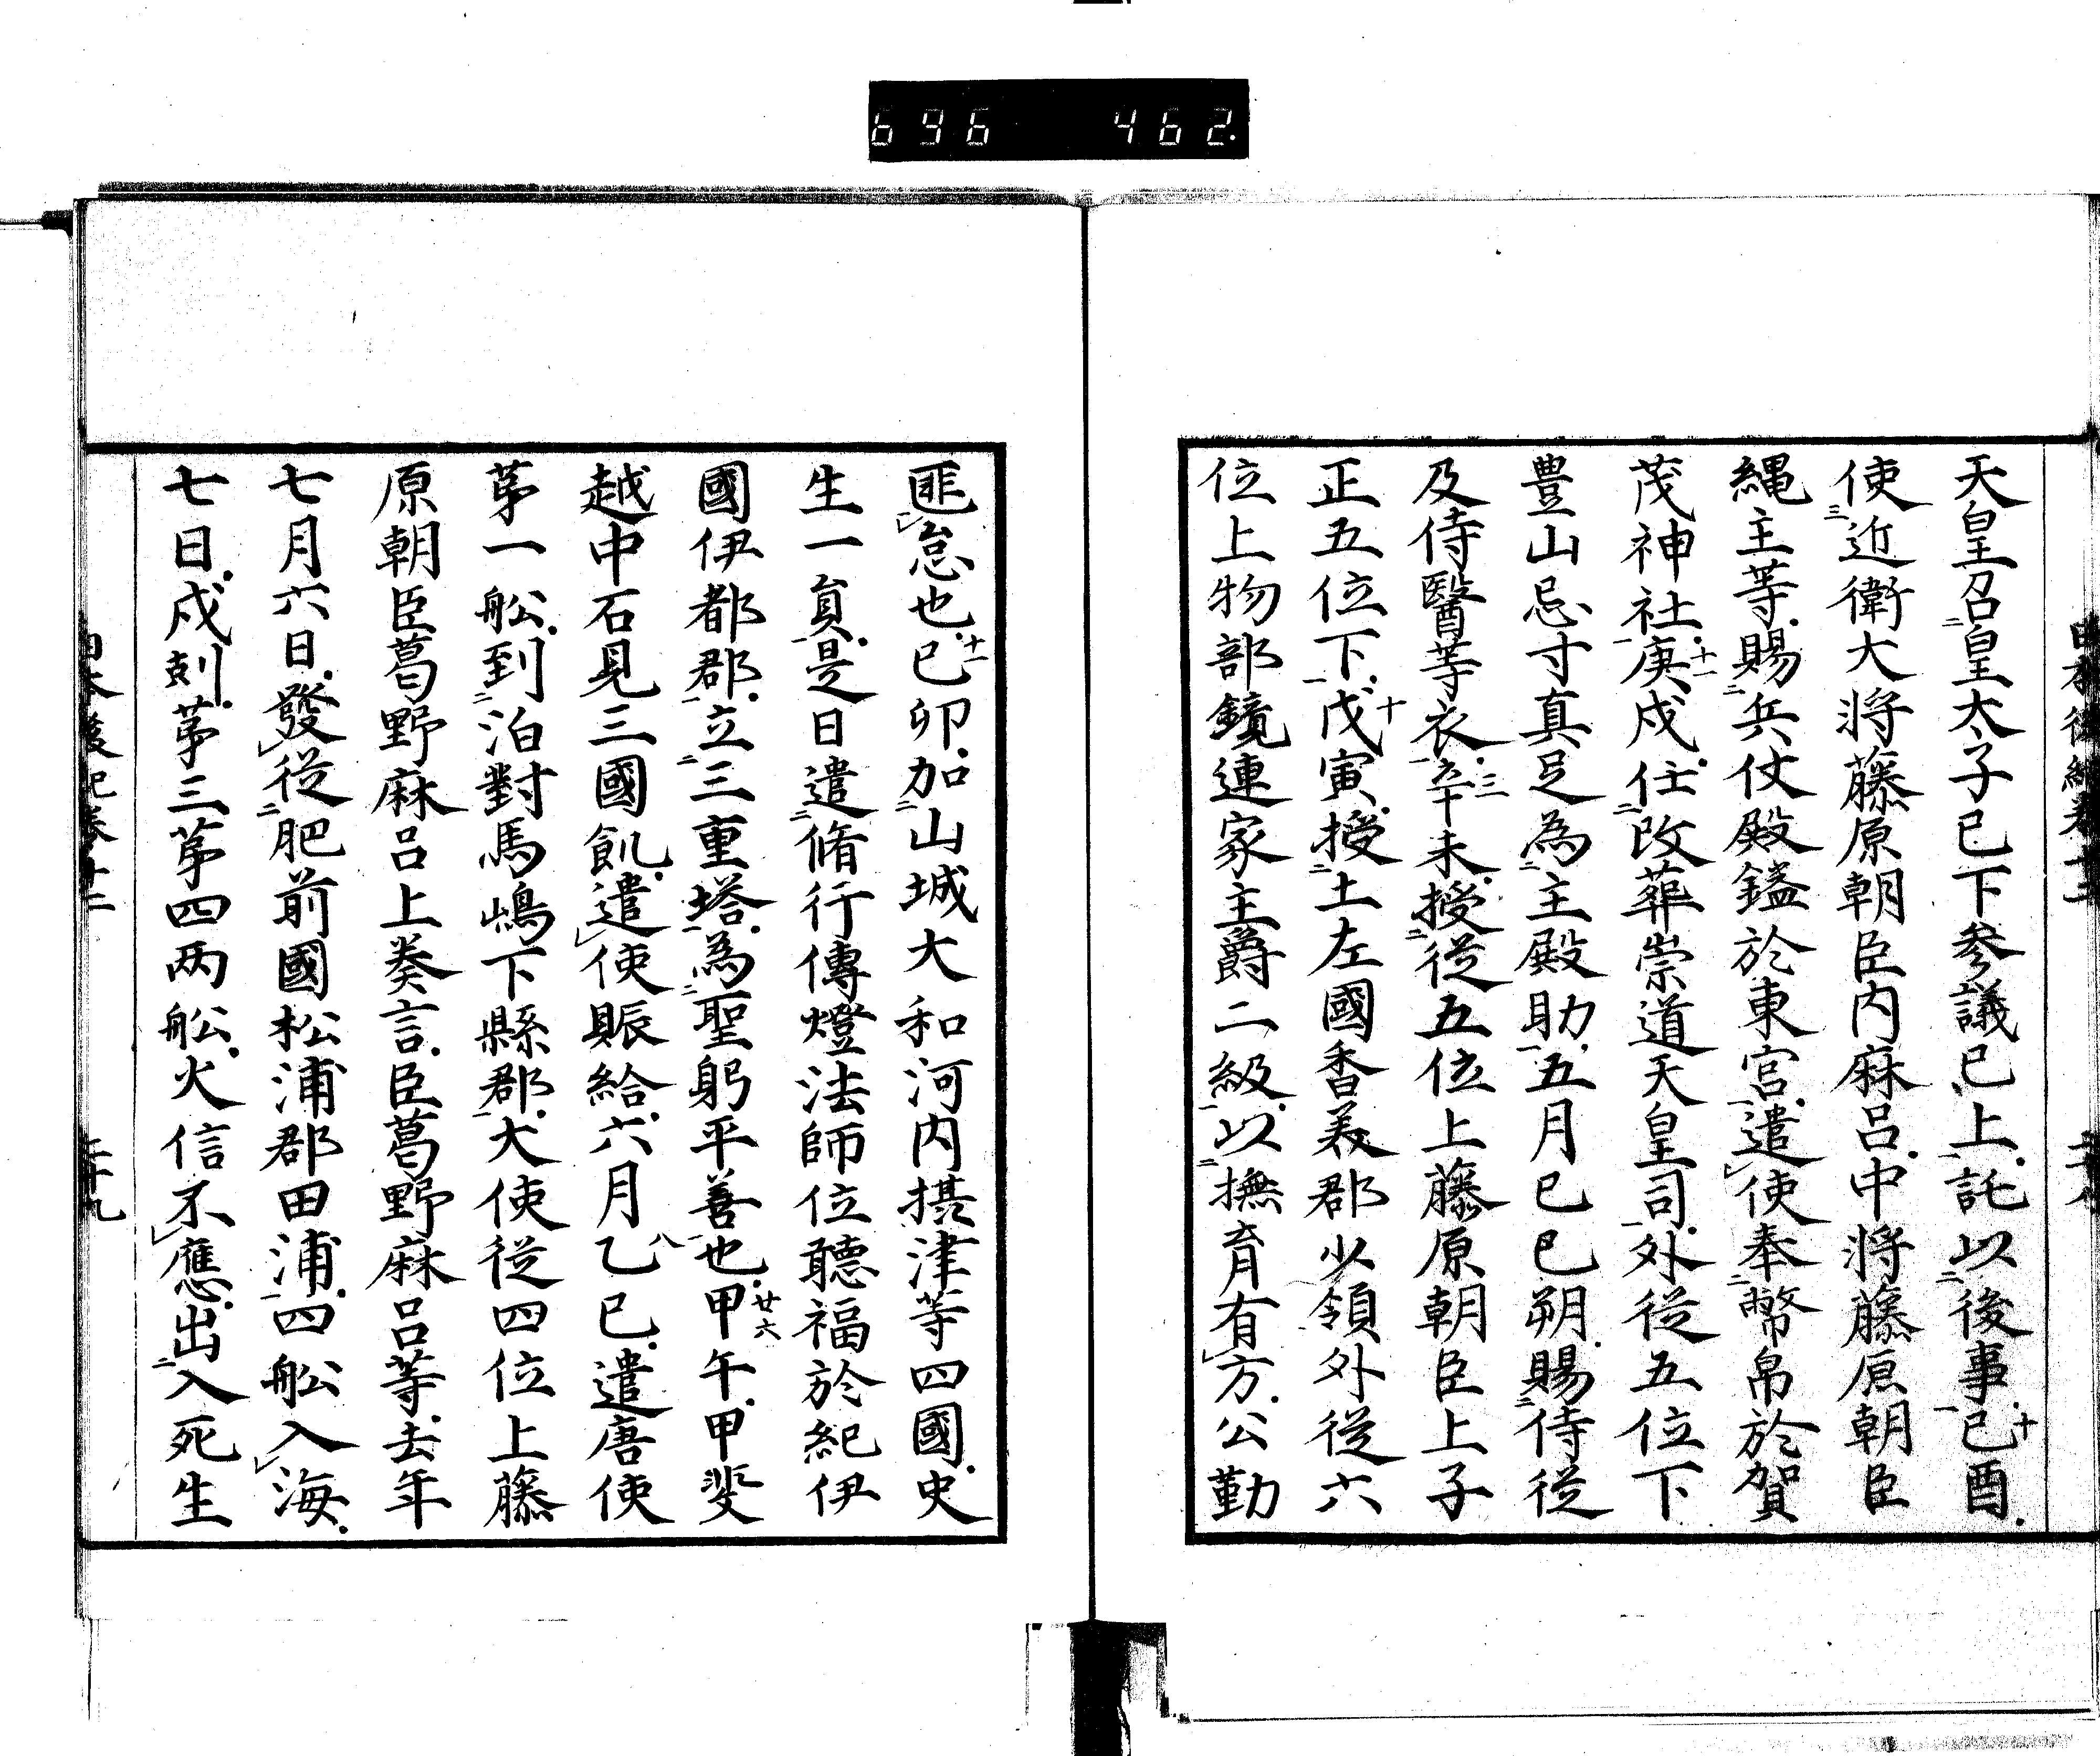 696 462
天皇召皇太子已下参議已上託以後事己酉
使近衛大将藤原朝臣内麻呂中将藤原朝臣
縄主等賜兵仗殿鎰於東宮遣使奉幣帛於賀
茂神社庚戌任改葬崇道天皇司外従五位下
豊山忌寸真足為主殿助五月己巳朔賜侍従
及侍醫等衣辛未授従五位上藤原朝臣上子
正五位下戊寅授土左國香美郡少領外従六
位上物部鏡連家主爵二級以撫育有方公勤
匪怠也己卯加山城大和河内摂津等四國史
生一員是日遣脩行傳燈法師位聽福於紀伊
國伊都郡立三重塔為聖躬平善也甲午甲斐
越中石見三國飢遣使賑給六月乙巳遣唐使
苐一舩到泊對馬嶋下縣郡大使従四位上藤
原朝臣葛野麻呂上奏言臣葛野麻呂等去年
七月六日發従肥前國松浦郡田浦四舩入海
七日戌剋苐三苐四両舩火信不應出入死生